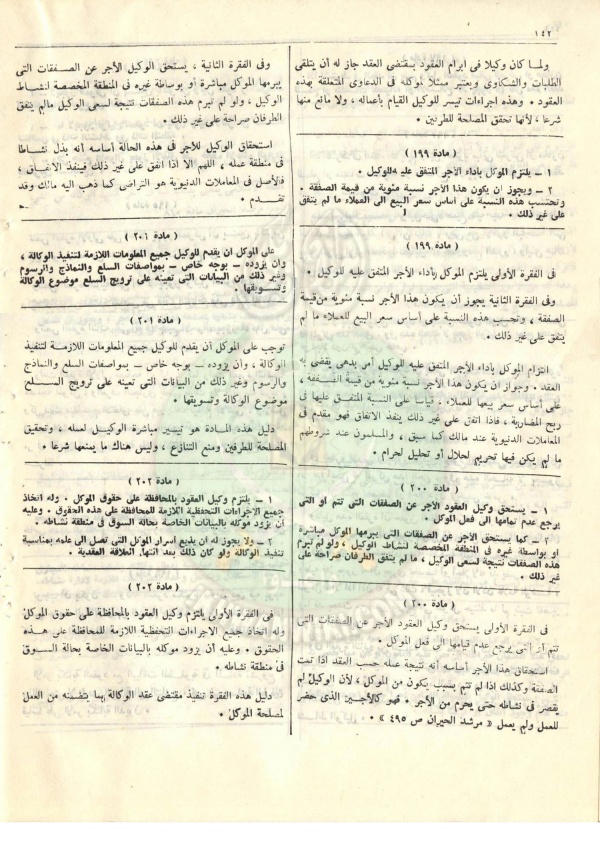 ١٤٢
ولما كان وكيلا فى ابرام العقود بمقتضى العقد جاز له أن يتلقى
الطلبات والشكاوى ويعتبر ممثلا لموكله فى الدعاوى المتعلقة بهذه
العقود ٠ وهذه اجراءات تيسر للوكيل القيام بأعماله ، ولا مانع منها
شرعا ، لأنها تحقق المصلحة للطرفين ٠
( مادة ١٩٩ )
١ ـ يلتزم الموكل بأداء الأجر المتفق عليه للوكيل ٠
٢ ـ ويجوز ان يكون هذا الأجر نسبة مئوية من قيمة الصفقة ٠
وتحتسب هذه النسبة على أساس سعر البيع الى العملاء ما لم يتفق
على غير ذلك ٠
( مادة ١٩٩ )
فى الفقرة الأولى يلتزم الموكل بأداء الأجر المتفق عليه للوكيل ٠
وفى الفقرة الثانية يجوز أن يكون هذا الأجر نسبة مئوية من قيمة
الصفقة ، وتحسب هذه النسبة على أساس سعر البيع للعملاء ما لم
يتفق على غير ذلك ٠
التزام الموكل بأداء الأجر المتفق عليه للوكيل أمر بدهى يقضى به
العقد ٠ وجواز ان يكون هذا الأجر نسبة مئوية من قيمة الصفقة ،
على أساس سعر بيعها للعملاء ، قياسا على النسبة المتفق عليها فى
ربح المضاربة ، فاذا اتفق على غير ذلك ينفذ الاتفاق فهو مقدم فى
المعاملات الدنيوية عند مالك كما سبق ، والمسلمون عند شروطهم
ما لم يكن فيها تحريم لحلال أو تحليل لحرام ٠
( مادة ٢٠٠ )
١ ـ يستحق وكيل العقود الأجر عن الصفقات التى تتم او التى
يرجع عدم تمامها الى فعل الموكل ٠
٢ ـ كما يستحق الأجر عن الصفقات التى يبرمها الموكل مباشرة
او بواسطة غيره فى المنطقة المخصصة لنشاط الوكيل ، ولو لم تبرم
هذه الصفقات نتيجة لسعى الوكيل ، ما لم يتفق الطرفان صراحة على
غير ذلك ٠
( مادة ٢٠٠ )
فى الفقرة الأولى يستحق وكيل العقود الأجر عن الصفقات التى
تتم أو التى يرجع عدم قيامها الى فعل الموكل ٠
استحقاق هذا الأجر أساسه أنه نتيجة عمله حسب العقد اذا تمت
الصفقة وكذلك اذا لم تتم بسبب يكون من الموكل ، لأن الوكيل لم
يقصر فى نشاطه حتى يحرم من الأجر ٠ فهو كالأجير الذى حضر
للعمل ولم يعمل « مرشد الحيران ص ٤٩٥ » ٠
وفى الفقرة الثانية ، يستحق الوكيل الأجر عن الصفقات التى
يبرمها الموكل مباشرة أو بوساطة غيره فى المنطقة المخصصة لنشاط
الوكيل ، ولو لم تبرم هذه الصفقات نتيجة لسعى الوكيل مالم يتفق
الطرفان صراحة على غير ذلك ٠
استحقاق الوكيل للأجر فى هذه الحالة أساسه أنه بذل نشاطا
فى منطقة عمله ، اللهم الا اذا اتفق على غير ذلك فينفذ الاتفاق ،
فالأصل فى المعاملات الدنيوية هو التراضى كما ذهب اليه مالك وقد
تقدم ٠
( مادة ٢٠١ )
على الموكل ان يقدم للوكيل جميع المعلومات اللازمة لتنفيذ الوكالة ،
وان يزوده ـ بوجه خاص ـ بمواصفات السلع والنماذج والرسوم
وغير ذلك من البيانات التى تعينه على ترويج السلع موضوع الوكالة
وتسويقها ٠
( مادة ٢٠١ )
توجب على الموكل أن يقدم للوكيل جميع المعلومات اللازمة لتنفيذ
الوكالة ، وأن يزوده ـ بوجه خاص ـ بمواصفات السلع والنماذج
والرسوم وغير ذلك من البيانات التى تعينه على ترويج السلع
موضوع الوكالة وتسويقها ٠
دليل هذه المادة هو تيسير مباشرة الوكيل لعمله ، وتحقيق
المصلحة للطرفين ومنع التنازع ، وليس هناك ما يمنعها شرعا ٠
( مادة ٢٠٢ )
١ ـ يلتزم وكيل العقود بالمحافظة على حقوق الموكل ٠ وله اتخاذ
جميع الاجراءات التحفظية اللازمة للمحافظة على هذه الحقوق ٠ وعليه
أن يزود موكله بالبيانات الخاصة بحالة السوق فى منطقة نشاطه ٠
٢ ـ ولا يجوز له أن يذيع اسرار الموكل التى تصل الى علمه بمناسبة
تنفيذ الوكالة ولو كان ذلك بعد انتهاء العلاقة العقدية ٠
( مادة ٢٠٢ )
فى الفقرة الأولى يلتزم وكيل العقود بالمحافظة على حقوق الموكل
وله اتخاذ جميع الاجراءات التحفظية اللازمة للمحافظة على هذه
الحقوق ٠ وعليه أن يزود موكله بالبيانات الخاصة بحالة السوق
فى منطقة نشاطه ٠
دليل هذه الفقرة تنفيذ مقتضى عقد الوكالة بما يتضمنه من العمل
لمصلحة الموكل ٠